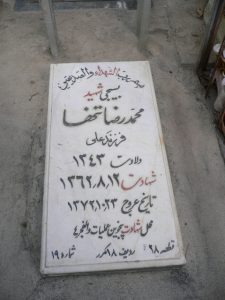 رب الشهداء والصدیقین
بسیجی شهید
محمدرضا تنها
فرزند علی
ولادت ۱۳۴۳
شهادت ۱۳۶۲٫۸٫۱۲
تاریخ عروج ۱۳۷۲٫۱۰٫۲۳
محل شهادت پنجوین عملیات والفجر ۴
قطعه ۲۸ ردیف ۱۸ مکرر شماره ۱۹